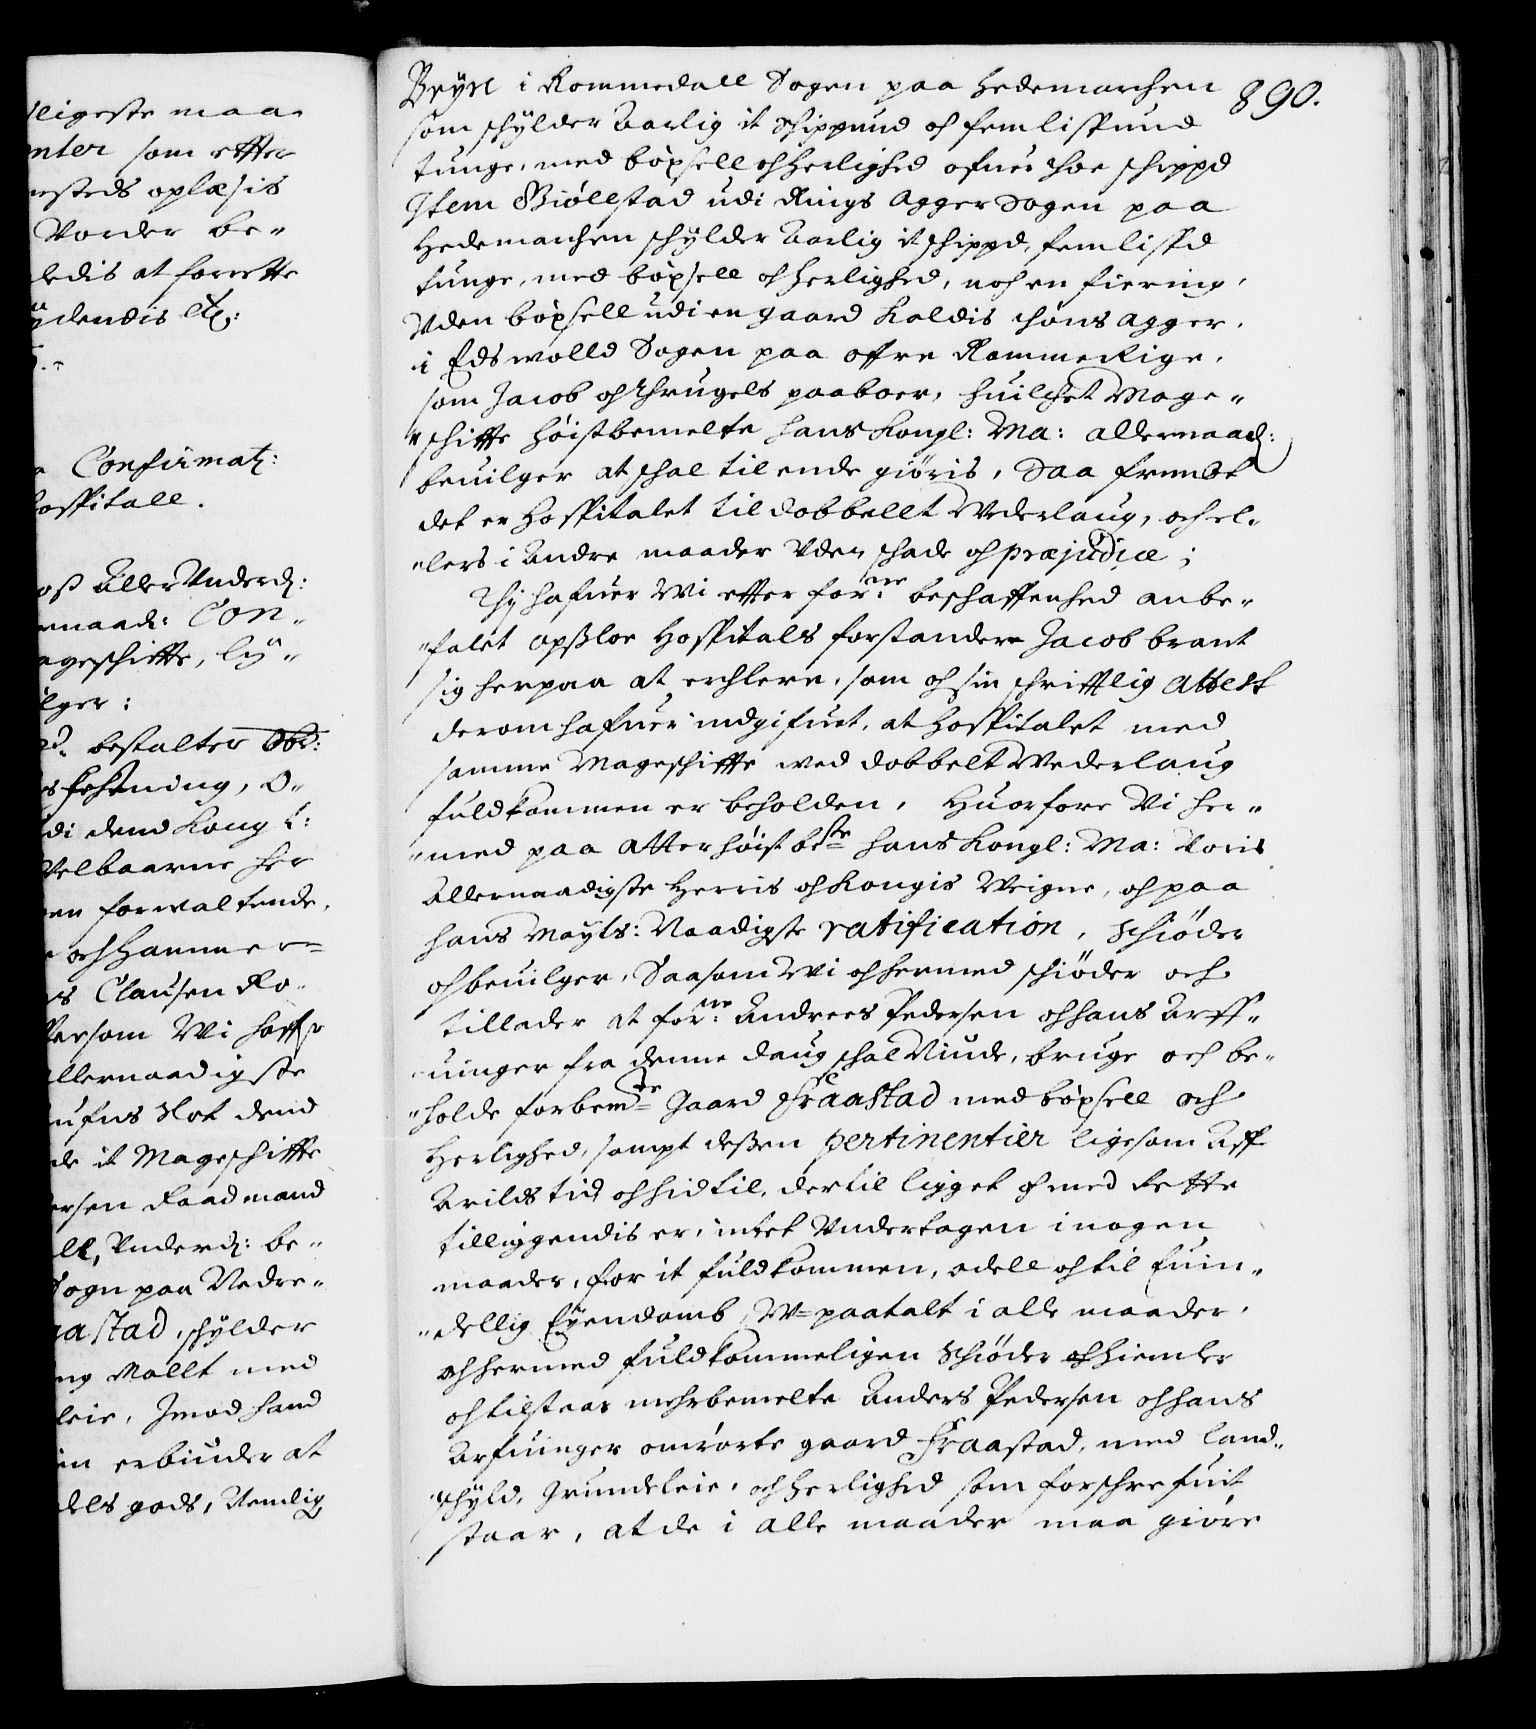 lligeste maa
nter som effter
esteds oplæsis
Vorder be„
ledis at forrette
ydendis etc:
Confirmat:
ospitall.
oß Aller Underd:
rnaad: Con„
ageschiffte, ly„
ilger:
bestalter Obr:
di dend Kong l:
Velbaarne Her
en forwaltende,
och Hammer=
s Clausen Ko
ersom Wi haffr
llernaadigste
ufns Slot dend
de it Mageschiffte
ersen Raadmand
ll, Underd: be„
Sogn paa Nedre„
aastad, schylder
ng Mallt med
leie, Imod hand
en erbiuder at
dels gods, Nemlig
890.
Bryn i Rommedall Sogen paa Hedemarchen
som schylder Aarlig it Schippund och femlispund
tunge, med böxsell och Herlighed ofuer thoe schippd
Item Giøllstad udi Rings Agger Sogen paa
Hedemarchen schylder Aarlig it schippd, fem lispd
tunge, med böxsell och Herlighed, noch en fiering,
Uden böxsell udi en gaard Kaldis Høns Agger,
i Edswolld Sogen paa offre Rommerige,
som Jacob och Thrugels paaboer, huilchet Mage„
„schiffte höistbemelte hans Kongl: Ma: allernaad:
beuilger at schal til ende giöris, Saa frembt
det er Hospitalet til dobbellt Wederlaug, och el„
„lers i Andre maader Uden schade och præjudice;
Thi hafuer Wi effter forne: beschaffenhed anbe„
„falet Opsloe Hospitals forstandere Jacob brant
sig herpaa at erchlere, som och sin schrifftlig Attest
derom hafuer indgifuet, at Hospitalet med
samme Mageschiffte wed dobbelt Wederlaug
fuldkommen er beholden, Huorfore Vi her„
„med paa Atter höist beste hans Kongl: Ma: Voris
Allernaadigste Herris och Kongis Weigne, och paa
hans Mayts: Naadigste ratification, Schiöder
och beuilger, Saasom Wi och hermed schiöder och
tillader at forne: Andrees Pedersen och hans Arff„
„uinger fra denne daug schal Niude, bruge och be„
„holde forbemte Gaard Fraastad med böxsell och
Herlighed, sampt deßen pertinentier ligesom Aff
Arilds tid och hidtil, dertil ligget och med Rette
tilliggendis er, intet Undertagen i nogen
maader, for it fuldkommen, odell och til Euin„
„dellig Eyendomb, W=paatalt i alle maader,
och hermed fuldkommeligen Schiöder och hiemler
och tilstaar mehrbemelte Anders Pedersen och hans
Arfuinger omrörte gaard Fraastad, med land„
„schyld, Grundeleie, och Herlighed som forschrefuit
staar, at de i alle maader maa giöre